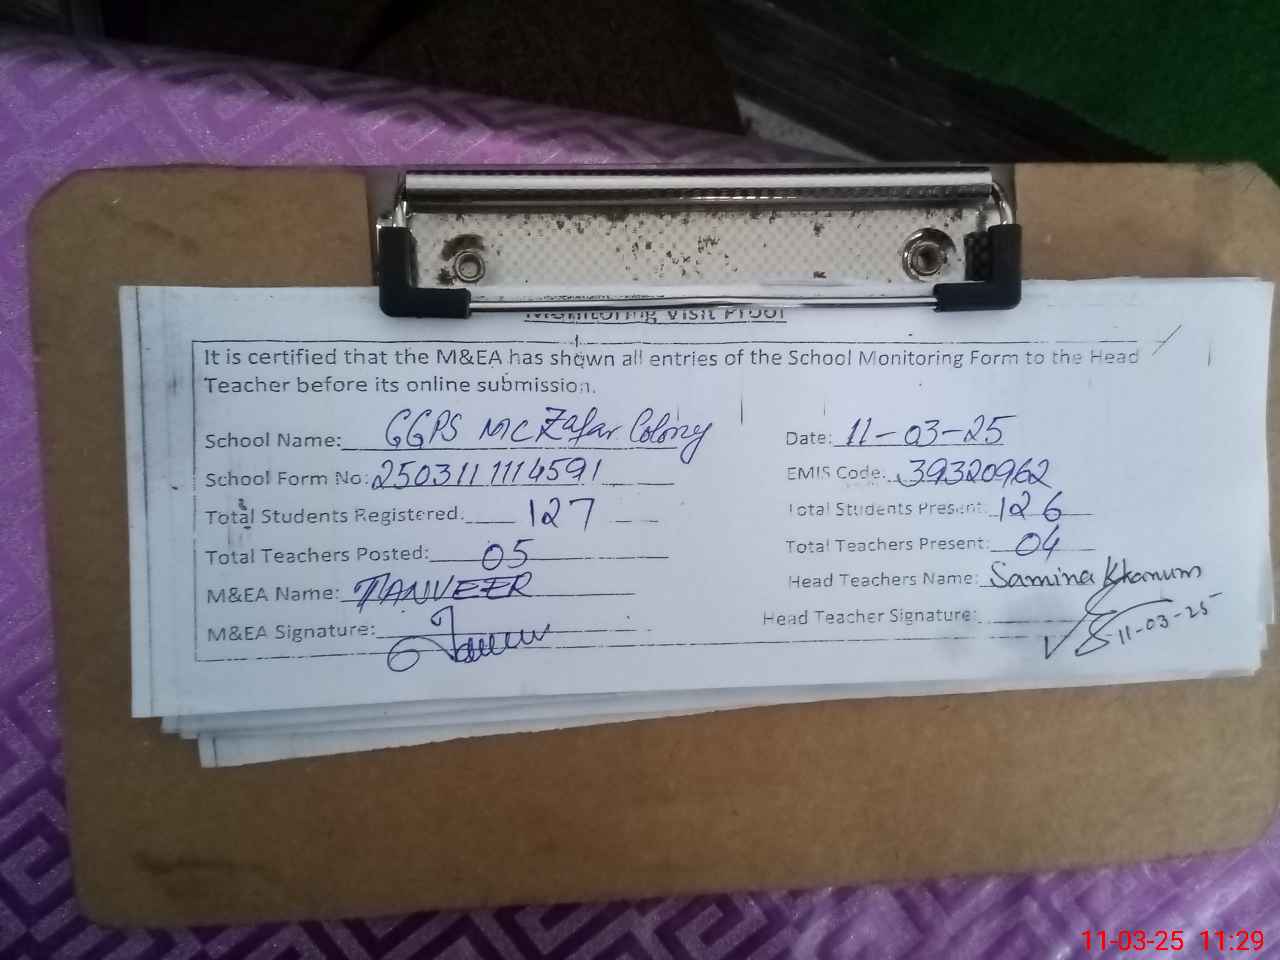 Monitoring Visit Proof
It is certified that the M&EA has shown all entries of the School Monitoring Form to the Head
Teacher before its online submission.
School Name: GGPS MC Zafar Colony Date: 11-03-25
School Form No: 250311 1114591 EMIS Code: 39320962
Total Students Registered: 127 Total Students Present: 126
Total Teachers Posted: 05 Total Teachers Present: 04
M&EA Name: TANVEER Head Teachers Name: Samina Khanum
M&EA Signature: Head Teacher Signature:
11-03-25
11-03-25 11:29